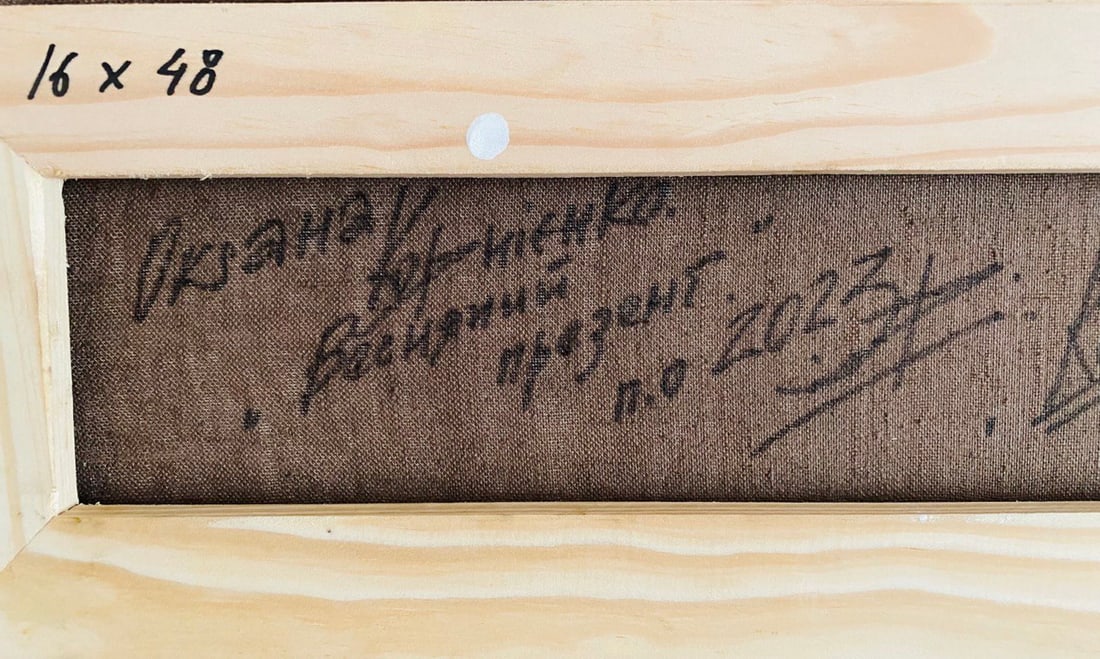 16 x 48
Оксана
Корнієнко.
Весняний
презент.
п.о 2023